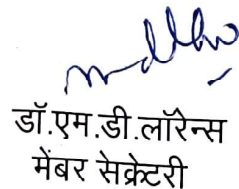 डॉ.एम.डी.लॉरेन्स
मेंबर सेक्रेटरी